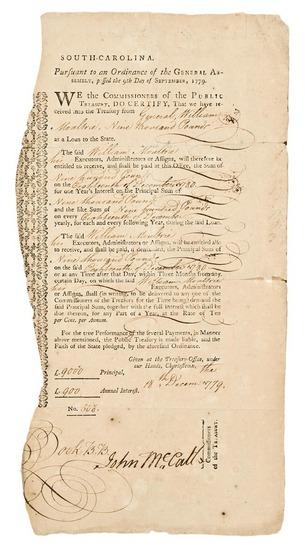 SOUTH-CAROLINA.
Pursuant to an Ordinance of the GENERAL AS-
SEMBLY, passed the 9th Day of SEPTEMBER, 1779.
WE the COMMISSIONERS of the PUBLIC
TREASURY, DO CERTIFY, That we have re-
ceived into the Treasury from General William
Moultrie, Nine thousand Pounds
as a Loan to the State.
The said William Moultrie
his Executors, Administrators or Assigns, will therefore be
entitled to receive, and shall be paid at this Office, the Sum of
Nine hundred Pounds
on the Eighteenth of December 1780
for one Year's Interest on the Principal Sum of
Nine thousand Pounds
and the like Sum of Nine hundred Pounds
on every Eighteenth of December
yearly, for each and every following Year, during the said Loan.
The said William Moultrie
his Executors, Administrators or Assigns, will be entitled also
to receive, and shall be paid, the Principal Sum of
Nine thousand Pounds
on the said Eighteenth of December 1780
or at any Time after that Day, within Three Months from any
certain Day, on which the said William Moultrie
his Executors, Administrators
or Assigns, shall in writing, to be delivered to any one of the
Commissioners of the Treasury for the Time being demand the
said Principal Sum, together with the full Interest which shall be
then due thereon, for any Part of a Year, at the Rate of Ten
per Cent. per Annum.
For the true Performance of the several Payments, in Manner
above mentioned, the Public Treasury is made liable, and the
Faith of the State pledged, by the aforesaid Ordinance.
Given at the Treasury-Office, under
our Hands, Charlestown, the
18th Decem 1779.
£. 9000 Principal,
£. 900 Annual Interest.
No.
Book B.B.
John McCall
Commissioners
of the TREASURY.